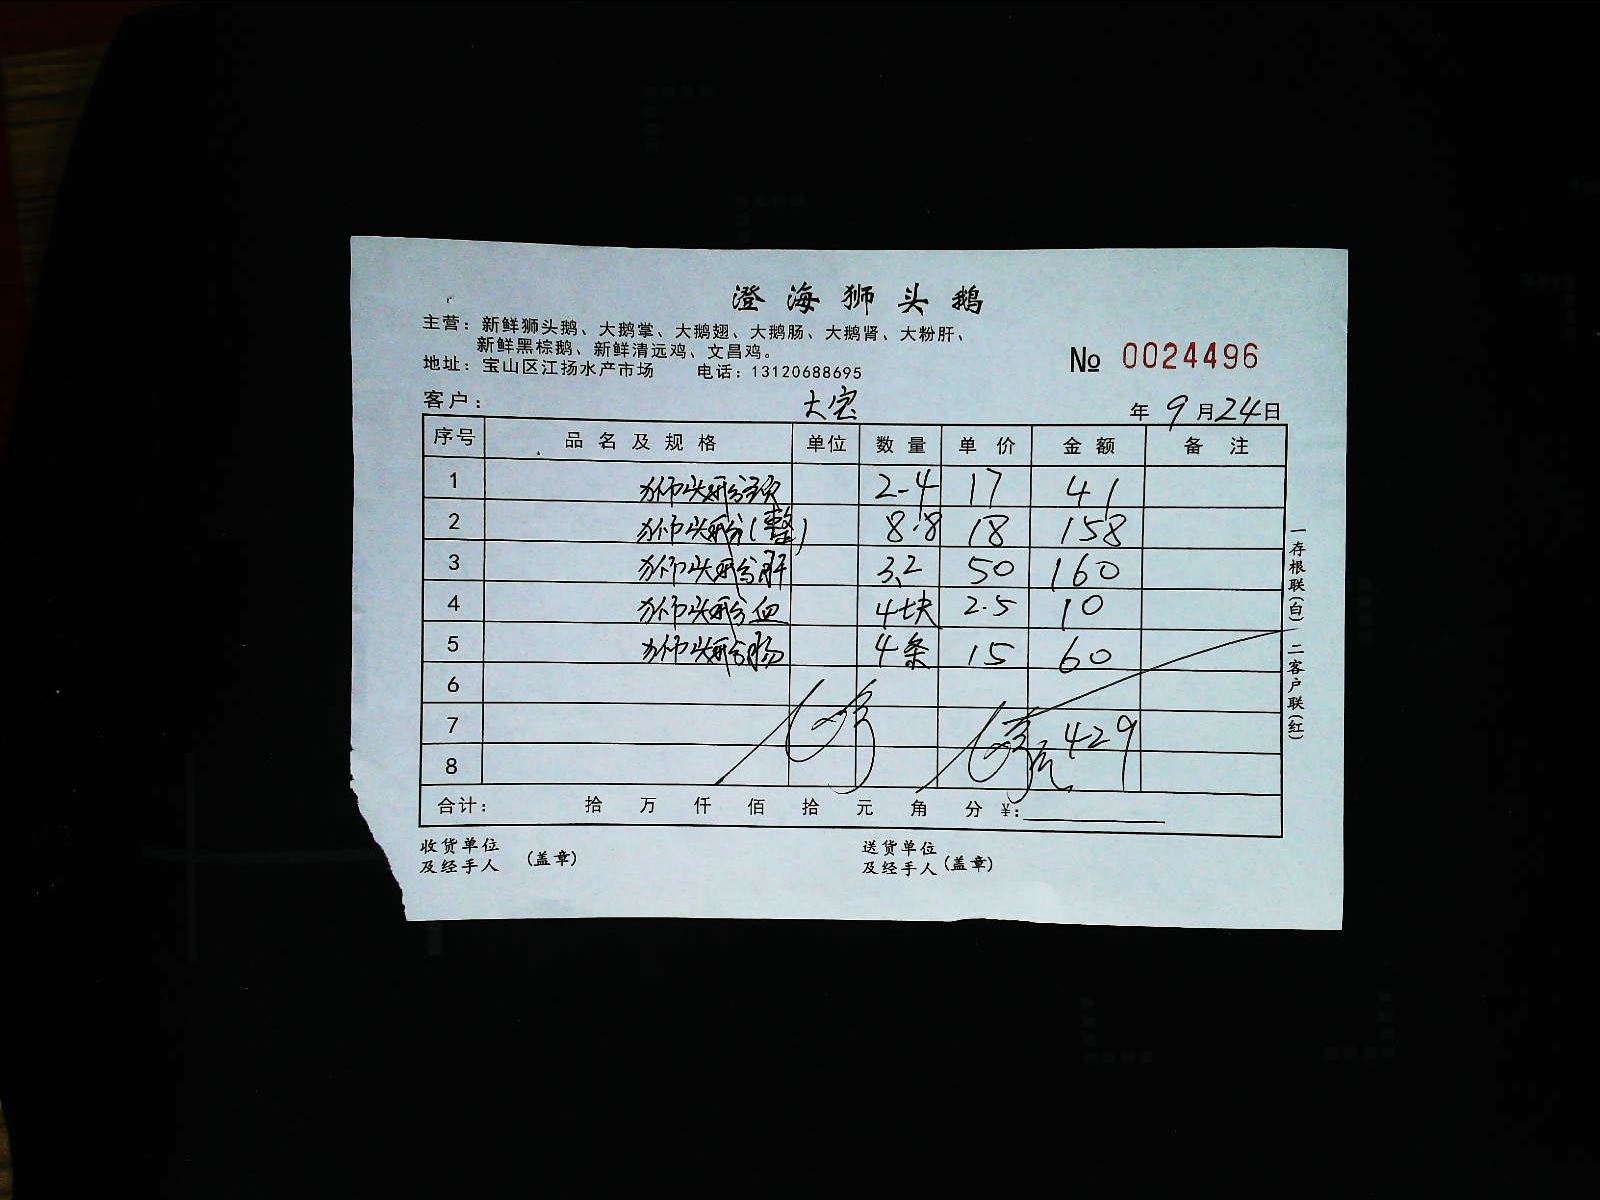 澄海狮头鹅
主营：新鲜狮头鹅、大鹅掌、大鹅翅、大鹅肠、大鹅肾、大粉肝、
新鲜黑棕鹅、新鲜清远鸡、文昌鸡。
地址：宝山区江扬水产市场 电话：13120688695
№ 0024496
客户： 大宝 年 9 月 24 日
序号 品名及规格 单位 数量 单价 金额 备注
1 狮头鹅头 2-4 17 41
2 狮头鹅(整) 8.8 18 158
3 狮头鹅肝 3.2 50 160
4 狮头鹅血 4块 2.5 10
5 狮头鹅肠 4条 15 60
6
7 429
8
合计： 拾 万 仟 佰 拾 元 角 分 ¥：
收货单位
及经手人 (盖章)
送货单位
及经手人 (盖章)
一存根联(白) 二客户联(红)